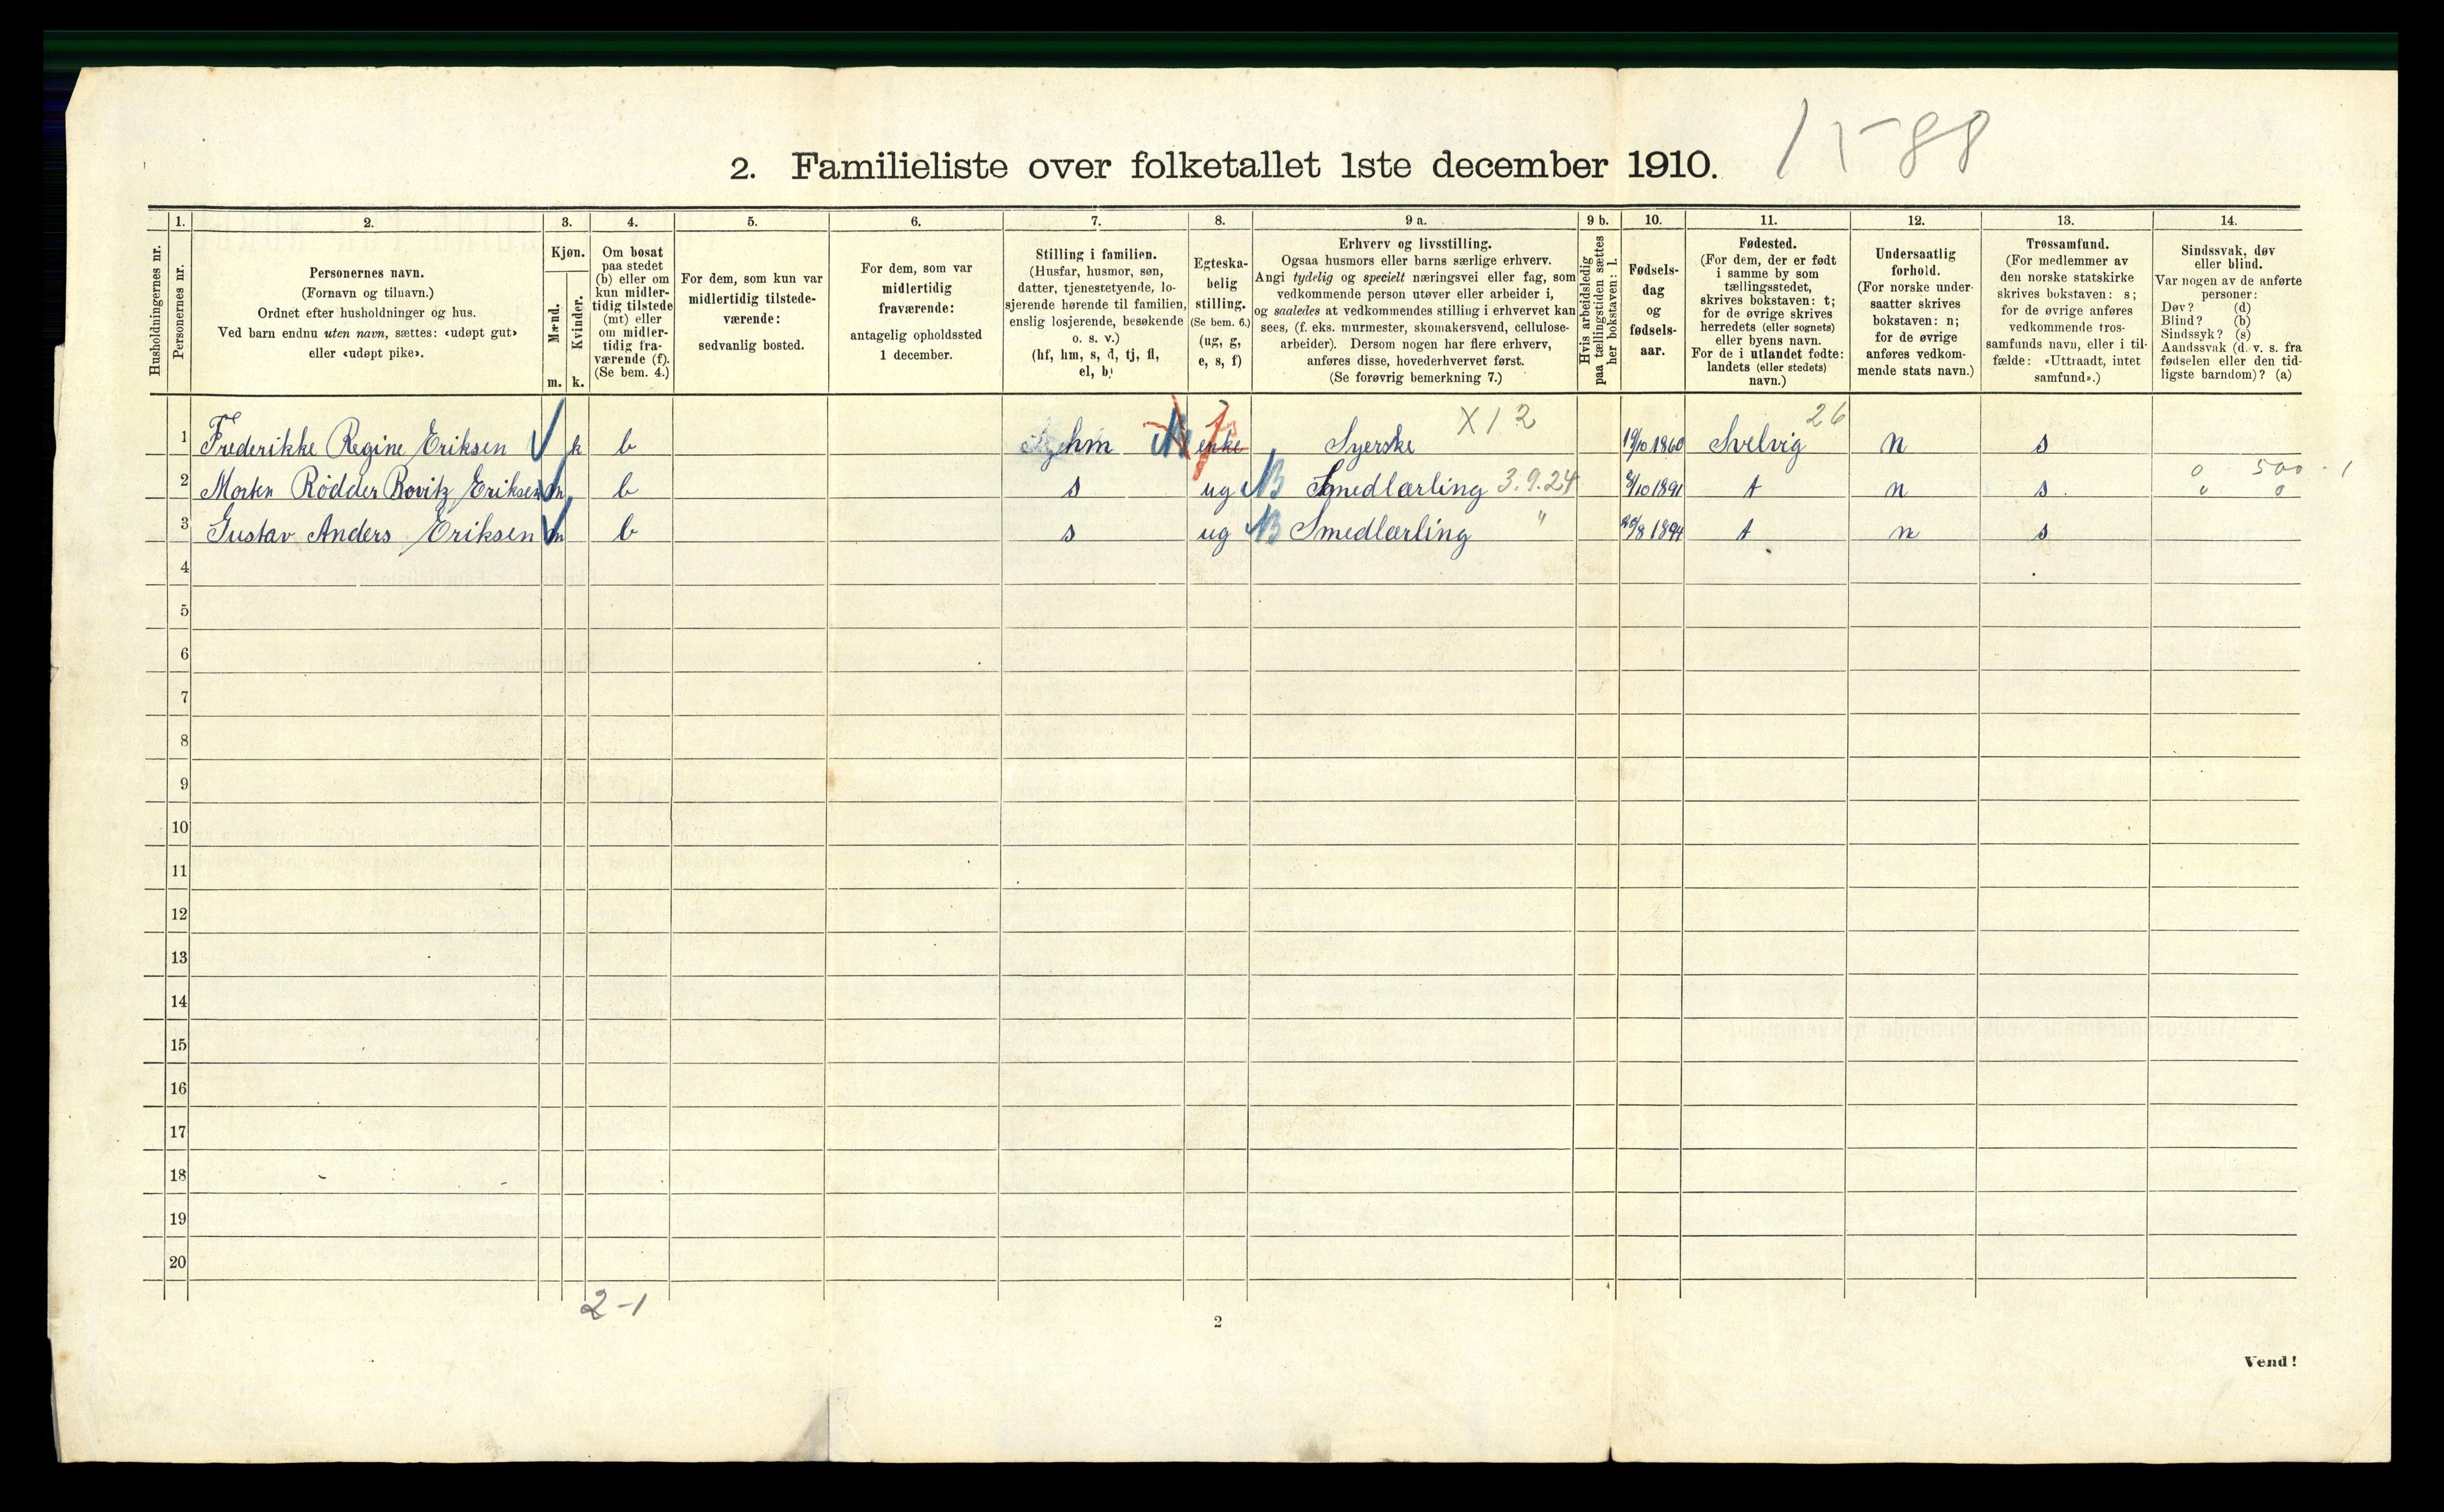 2. Familieliste over folketallet 1ste december 1910.
1588
Husholdningernes nr.
1.
Personernes nr.
2.
Personernes navn.
(Fornavn og tilnavn.)
Ordnet efter husholdninger og hus.
Ved barn endnu uten navn, sættes: «udøpt gut»
eller «udøpt pike».
3.
Kjøn.
Mænd.
Kvinder.
m. k.
4.
Om bosat
paa stedet
(b) eller om
kun midler-
tidig tilstede
(mt) eller
om midler-
tidig fra-
værende (f).
(Se bem. 4.)
5.
For dem, som kun var
midlertidig tilstede-
værende:
sedvanlig bosted.
6.
For dem, som var
midlertidig
fraværende:
antagelig opholdssted
1 december.
7.
Stilling i familien.
(Husfar, husmor, søn,
datter, tjenestetyende, lo-
sjerende hørende til familien,
enslig losjerende, besøkende
o. s. v.)
(hf, hm, s, d, tj, fl,
el, b)
8.
Egteska-
belig
stilling.
(Se bem. 6.)
(ug, g,
e, s, f)
9 a.
Erhverv og livsstilling.
Ogsaa husmors eller barns særlige erhverv.
Angi tydelig og specielt næringsvei eller fag, som
vedkommende person utøver eller arbeider i,
og saaledes at vedkommendes stilling i erhvervet kan
sees, (f. eks. murmester, skomakersvend, cellulose-
arbeider). Dersom nogen har flere erhverv,
anføres disse, hovederhvervet først.
(Se forøvrig bemerkning 7.)
9 b.
Hvis arbeidsledig
paa tællingstiden sættes
her bokstaven: l.
10.
Fødsels-
dag
og
fødsels-
aar.
11.
Fødested.
(For dem, der er født
i samme by som
tællingsstedet,
skrives bokstaven: t;
for de øvrige skrives
herredets (eller sognets)
eller byens navn.
For de i utlandet fødte:
landets (eller stedets)
navn.)
12.
Undersaatlig
forhold.
(For norske under-
saatter skrives
bokstaven: n;
for de øvrige
anføres vedkom-
mende stats navn.)
13.
Trossamfund.
(For medlemmer av
den norske statskirke
skrives bokstaven: s;
for de øvrige anføres
vedkommende tros-
samfunds navn, eller i til-
fælde: «Uttraadt, intet
samfund».)
14.
Sindssvak, døv
eller blind.
Var nogen av de anførte
personer:
Døv? (d)
Blind? (b)
Sindssyk? (s)
Aandssvak (d. v. s. fra
fødselen eller den tid-
ligste barndom)? (a)
1 Frederikke Regine Eriksen k b hm enke Syerske X12 19/10 1860 Svelvig 26 n s
0 500 - 1
2 Morten Rödder Rovitz Eriksen m b s ug Smedlærling 3.9.24 /10 1891 t n s 0 0
3 Gustav Anders Eriksen m b s ug Smedlærling " /8 1894 t n s
4
5
6
7
8
9
10
11
12
13
14
15
16
17
18
19
20
2-1
2
Vend!